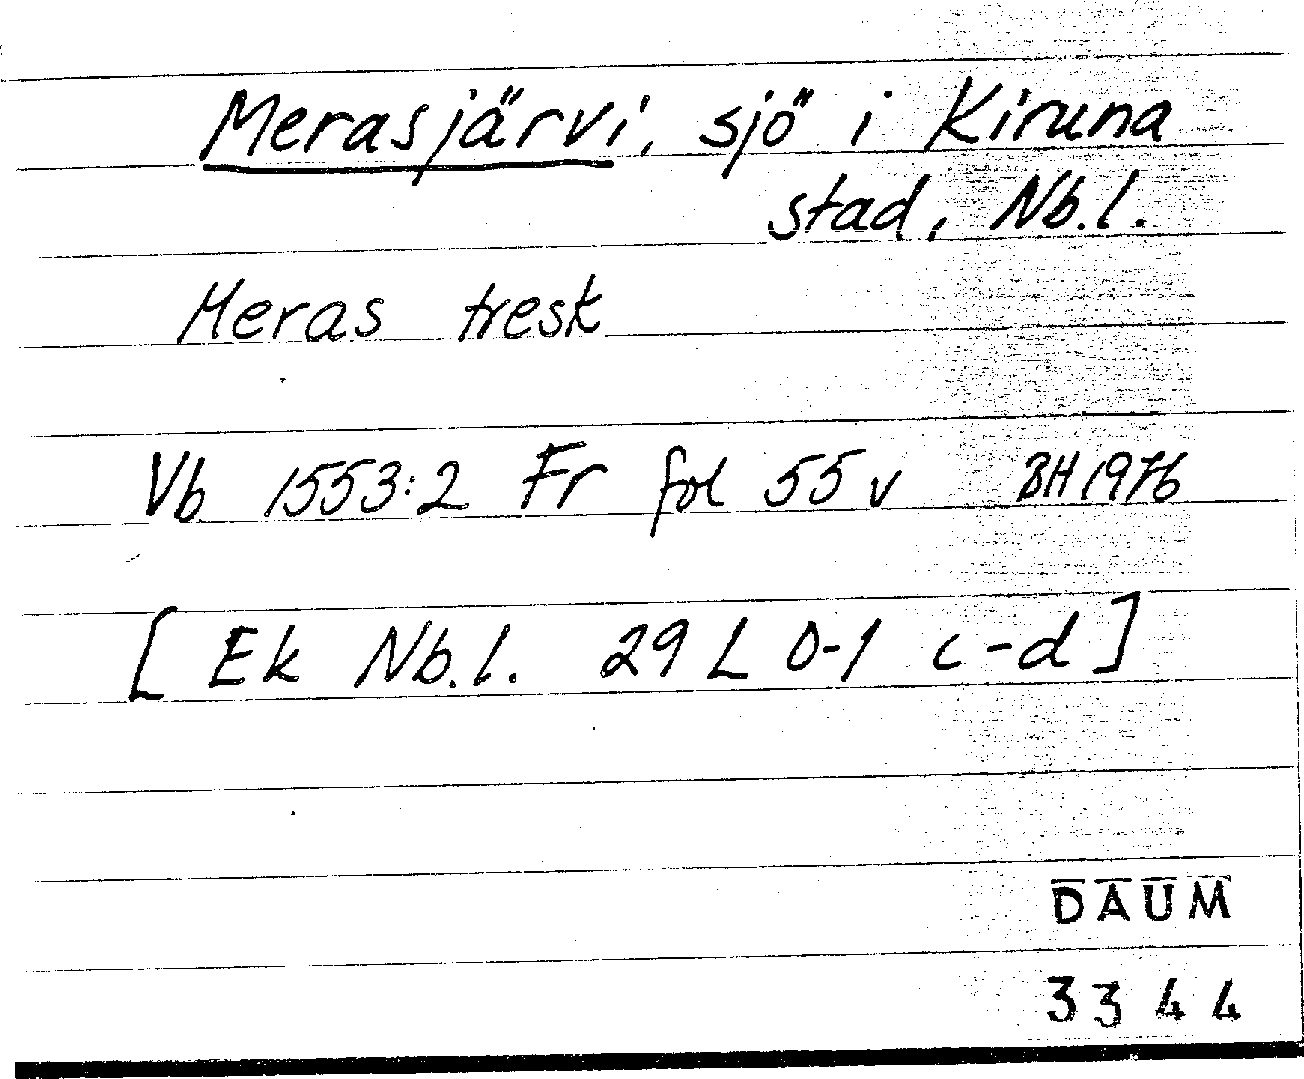 Merasjärvi, sjö i Kiruna
stad, Nb.l.
Meras tresk
Vb 1553:2 Fr fol 55 v BH 1976
[Ek Nb.l. 29 L 0-1 c-d]
DAUM
3344